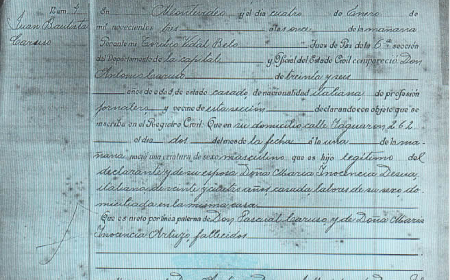 Núm. 7 En Montevideo y el día cuatro de Enero de
Juan Bautista mil novecientos tres a las once de la mañana
Caruso Vidal Belo Juez de Paz de la 6ª sección
del Departamento de la capital y Oficial del Estado Civil compareció Don
Antonio Caruso de treinta y seis
años de edad de estado casado de nacionalidad italiana de profesión
jornalero y vecino de esta sección declarando con objeto que se
inscriba en el Registro Civil: Que en su domicilio calle Yaguarón 262
el día dos del mes de la fecha a la una de la ma-
ñana nació una criatura de sexo masculino que es hijo legítimo del
declarante y de su esposa Doña María Inocencia
italiana de veinte y años casada labores de su sexo do-
miciliada en la misma casa.
Que es nieto por línea paterna de Don Pascual Caruso y de Doña María
Inocencia fallecidos